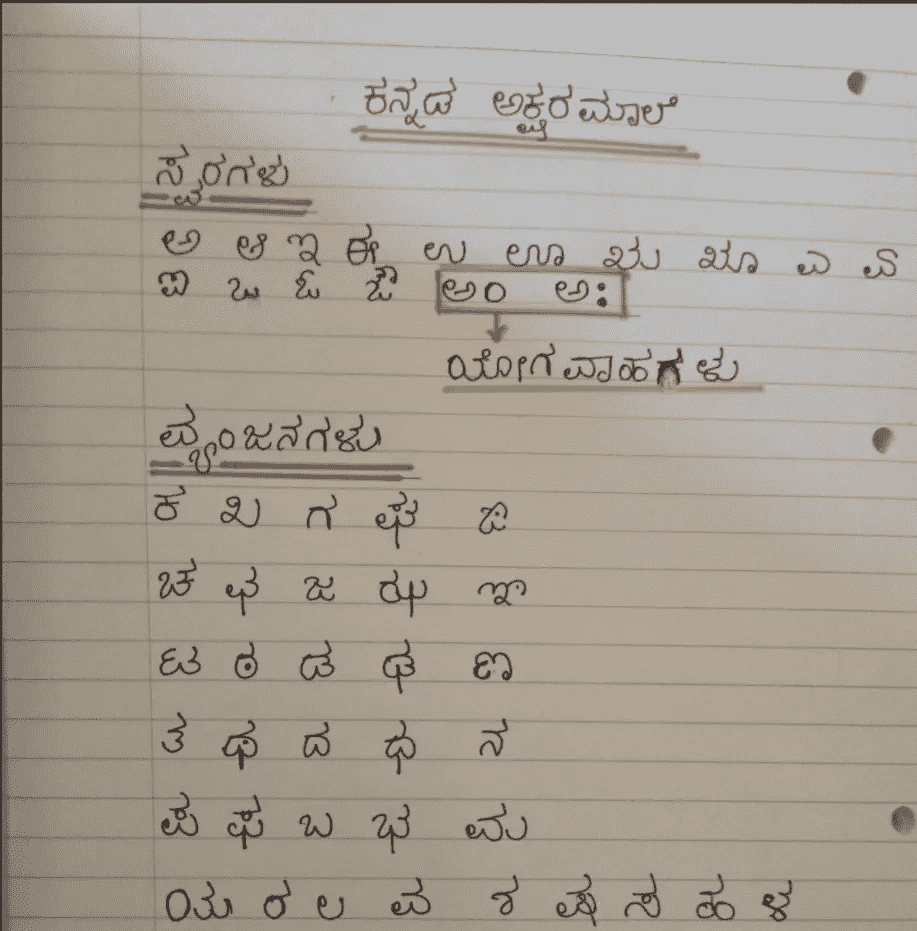 ಕನ್ನಡ ಅಕ್ಷರಮಾಲೆ
ಸ್ವರಗಳು
ಅ ಆ ಇ ಈ ಉ ಊ ಋ ೠ ಎ ಏ
ಐ ಒ ಓ ಔ ಅಂ ಅಃ
ಯೋಗವಾಹಗಳು
ವ್ಯಂಜನಗಳು
ಕ ಖ ಗ ಘ ಙ
ಚ ಛ ಜ ಝ ಞ
ಟ ಠ ಡ ಢ ಣ
ತ ಥ ದ ಧ ನ
ಪ ಫ ಬ ಭ ಮ
ಯ ರ ಲ ವ ಶ ಷ ಸ ಹ ಳ